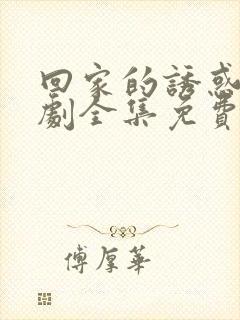 回家的誘惑
劇全集免費
傅厚華